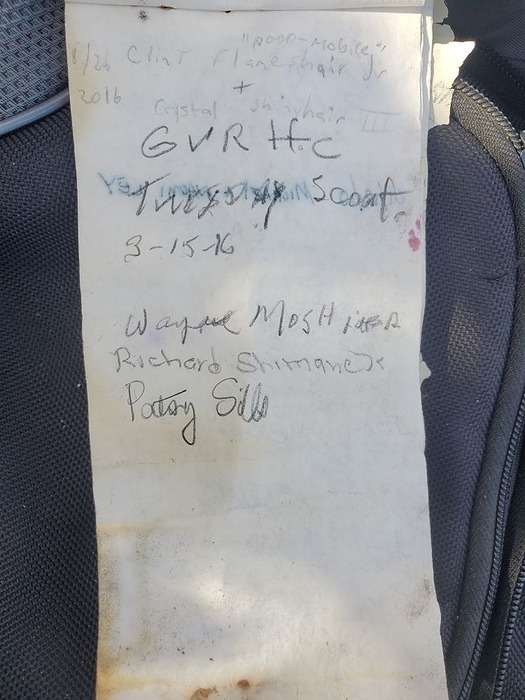 "poop-mobile"
1/26 Clint Flameshair Jr.
2016 +
Crystal Shinyhair III
GVR H.C
Tuesday Scout
3-15-16
Wayne MOSHIER
Richard Shimanek
Patsy Sills